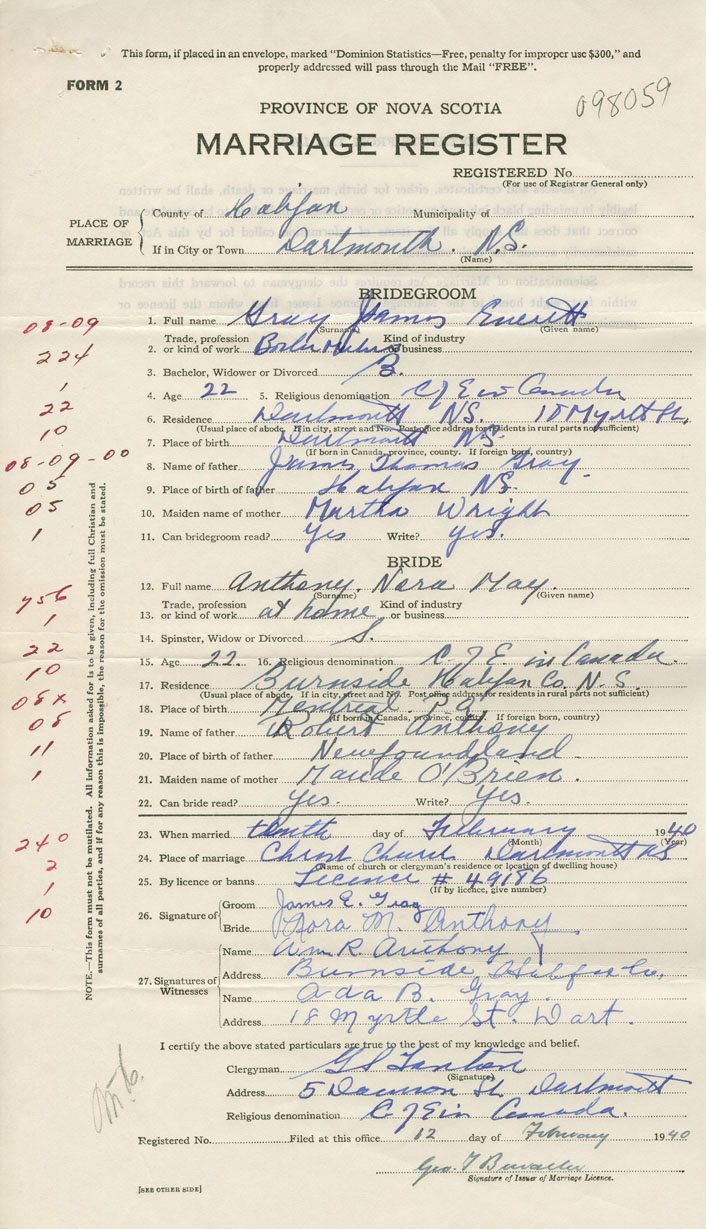 This form, if placed in an envelope, marked "Dominion Statistics—Free, penalty for improper use $300," and
properly addressed will pass through the Mail "FREE".
FORM 2
098059
PROVINCE OF NOVA SCOTIA
MARRIAGE REGISTER
REGISTERED No.
(For use of Registrar General only)
PLACE OF MARRIAGE
County of Halifax Municipality of
If in City or Town Dartmouth. N.S.
(Name)
BRIDEGROOM
08-09
1. Full name Gray James Everett
(Surname) (Given name)
224
2. Trade, profession or kind of work Boiler Maker Kind of industry or business
1
3. Bachelor, Widower or Divorced B.
22
4. Age 22 5. Religious denomination C of E in Canada
10
6. Residence Dartmouth N.S. 18 Myrtle St.
(Usual place of abode. If in city, street and No. Post office address for residents in rural parts not sufficient)
08-09-00
7. Place of birth Dartmouth N.S.
(If born in Canada, province, county. If foreign born, country)
05
8. Name of father James Thomas Gray
05
9. Place of birth of father Halifax N.S.
10. Maiden name of mother Martha Wright
1
11. Can bridegroom read? Yes Write? Yes.
BRIDE
12. Full name Anthony. Nora May.
(Surname) (Given name)
756
13. Trade, profession or kind of work at home Kind of industry or business
1
14. Spinster, Widow or Divorced S.
22
15. Age 22. 16. Religious denomination C of E in Canada.
10
17. Residence Burnside Halifax Co. N.S.
(Usual place of abode. If in city, street and No. Post office address for residents in rural parts not sufficient)
05x
18. Place of birth Montreal P.Q.
(If born in Canada, province, county. If foreign born, country)
05
19. Name of father Robert Anthony
11
20. Place of birth of father Newfoundland
1
21. Maiden name of mother Maude O'Brien.
22. Can bride read? Yes. Write? Yes.
23. When married tenth day of February 1940
(Month) (Year)
240
24. Place of marriage Christ Church Dartmouth NS
(Name of church or clergyman's residence or location of dwelling house)
2
25. By licence or banns Licence # 49186
(If by licence, give number)
1
10
26. Signature of
Groom James E. Gray
Bride Nora M. Anthony
27. Signatures of Witnesses
Name Wm R. Anthony
Address Burnside Halifax Co,
Name Ada B. Gray.
Address 18 Myrtle St. Dart.
NOTE.—This form must not be mutilated. All information asked for is to be given, including full Christian and
surnames of all parties, and if for any reason this is impossible, the reason for the omission must be stated.
I certify the above stated particulars are true to the best of my knowledge and belief.
Clergyman
(Signature)
Address 5 Dawson St. Dartmouth
Religious denomination C of E in Canada.
Registered No. Filed at this office 12 day of February 1940
Geo. T
Signature of Issuer of Marriage Licence.
[SEE OTHER SIDE]